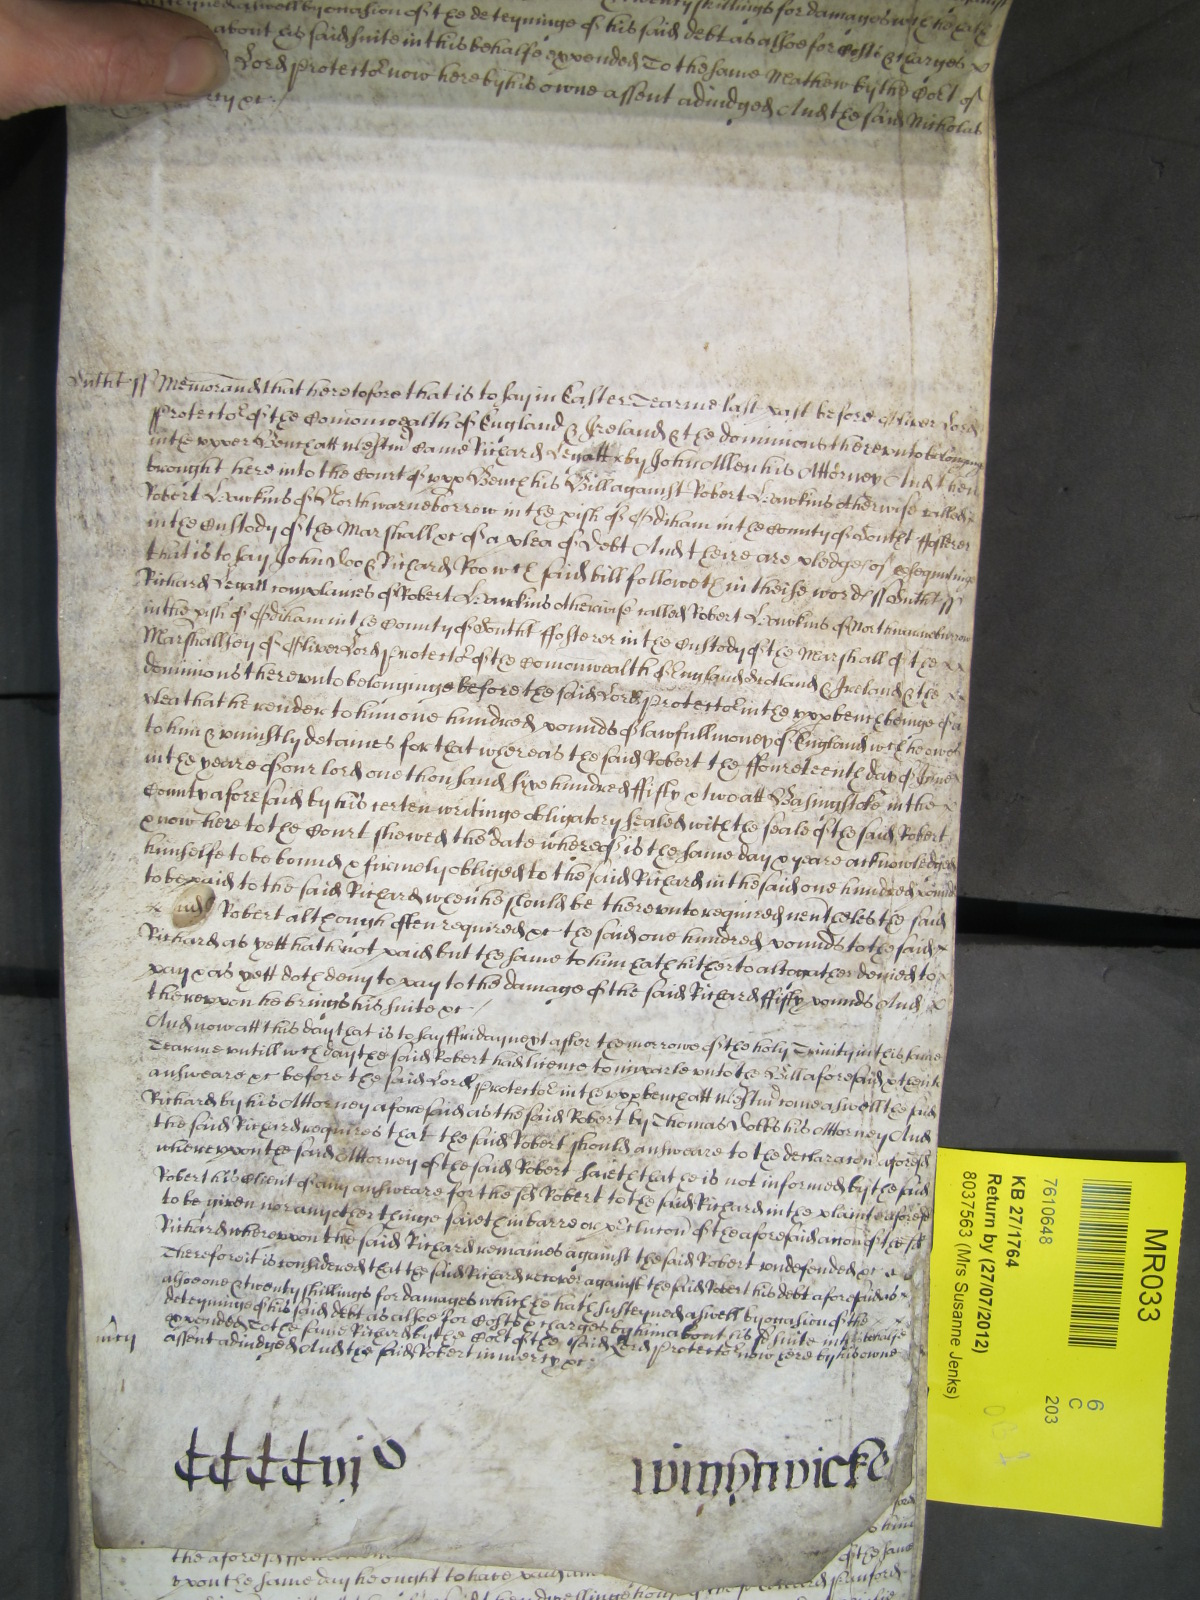 twenty shillings for damages wch he hath
susteyned aswell by occasion of the deteyninge of his said debt as alsoe for Costs & charges
about his said suite in this behalfe expended To the same Mathew by the Cort of
Lord Protector now here by his owne assent adiudged And the said Nicholas
Southt ss Memorand that heretofore that is to say in Easter Tearme last past before Oliver Lord
Protector of the Comonwealth of England & Ireland & the dominions thereunto belonging
in the upper Bench att Westmr Came Richard by John Allen his Attorney And then
brought here into the Court of upp Bench his Bill against Robert Hawkins otherwise called
Robert Hawkins of Northwarneborrow in the pish of Odiham in the County of Southt ffosterer
in the Custody of the Marshall &c of a plea of Debt And theire are pledges of psequutinge
that is to say John Doo & Richard Roo wch said bill followeth in theise words ss Southt ss
Richard complaines of Robert Hawkins otherwise called Robert Hawkins of Northwarneburrow
in the pish of Odiham in the County of Southt ffosterer in the Custody of the Marshall of the
Marshallsey of Oliver Lord Protector of the Comonwealth of England Scotland & Ireland & the
dominions thereunto belonginge before the said Lord Protector in the upp bench beinge of a
plea that he render to him one hundred pounds of lawfull money of England wch he owes
to him & uniustly detaines for that whereas the said Robert the ffoureteenth day of June
in the yeare of our lord one thousand six hundred ffifty & two att Basingstoke in the
County aforesaid by his certen writinge obligatory sealed with the seale of the said Robert
& now here to the Court shewed the date whereof is the same day & yeare acknowledged
himselfe to be bound & firmely obliged to the said Richard in the said one hundred pounds
to be paid to the said Richard when he should be thereunto required nevtheles the said
Robert although often required &c the said one hundred pounds to the said
Richard as yett hath not paid but the same to him hath hitherto altogather denied to
pay & as yett doth deny to pay to the damage of the said Richard ffifty pounds And
thereupon he brings his suite &c
And now att this day that is to say ffriday next after the morrowe of the holy Trinity in this same
Tearme untill wch day the said Robert had licence to imparle unto the Bill aforesaid & then to
answeare &c before the said Lord Protector in the upp bench att Westmr come aswell the said
Richard by his Attorney aforesaid as the said Robert by Thomas his Attorney And
the said Richard requires that the said Robert should answeare to the declaracon aforesd
whereupon the said Attorney of the said Robert saieth that he is not informed by the said
Robert his Client of any answeare for the sd Robert to the said Richard in the plaint aforesd
to be given nor any other thinge saieth in barre or preclucon of the aforesaid accon of the sd
Richard whereupon the said Richard remaines against the said Robert undefended &c
Therefore it is considered that the said Richard recover against the said Robert his debt aforesaid &
alsoe one & twenty shillings for damages which he hath susteyned aswell by occasion of the
deteyninge of his said debt as alsoe for Costs & charges by him about his sd suite in this behalfe
expended To the same Richard by the Cort of the said Lord Protector now here by his owne
mercy assent adiudged And the said Robert in mercy &c
CCCCvjo Wynnwicke
the aforesd
upon the same day he ought to have
MR033
6
C
203
7610648
KB 27/1764
Return by (27/07/2012)
8037563 (Mrs Susanne Jenks)